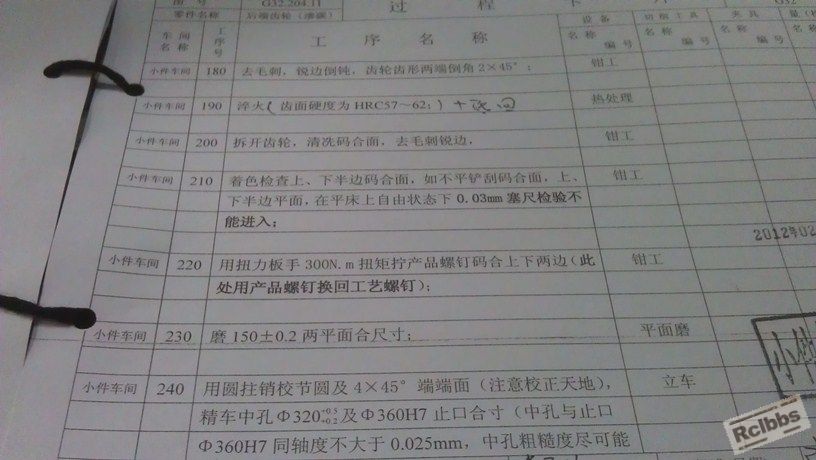 图 号 G32.204.11 过 程 卡 片 G32
零件名称 后端齿轮（渗碳）
车间名称 工序号 工 序 名 称 设备 名称 编号 切削工具 名称 编号 夹具 名称 编号 量
小件车间 180 去毛刺，锐边倒钝，齿轮齿形两端倒角 2×45°； 钳工
小件车间 190 淬火（齿面硬度为 HRC57～62；）+ 回 热处理
小件车间 200 拆开齿轮，清洗码合面，去毛刺锐边， 钳工
小件车间 210 着色检查上、下半边码合面，如不平铲刮码合面，上、 钳工
下半边平面，在平床上自由状态下 0.03mm 塞尺检验不
能进入；
2012年02
小件车间 220 用扭力板手 300N.m 扭矩拧产品螺钉码合上下两边（此 钳工
处用产品螺钉换回工艺螺钉）；
小件车间 230 磨 150±0.2 两平面合尺寸； 平面磨
小件车间 240 用圆拄销校节圆及 4×45°端端面（注意校正天地）， 立车
精车中孔Φ320+0.5+0.2及Φ360H7 止口合寸（中孔与止口
Φ360H7 同轴度不大于 0.025mm，中孔粗糙度尽可能
小件
Rclbbs